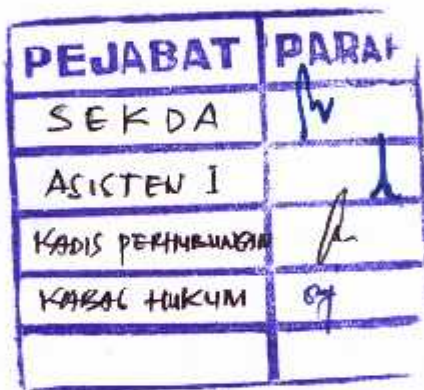 PEJABAT PARAF
SEKDA
ASISTEN I
KADIS PERHUBUNGAN
KABAG HUKUM